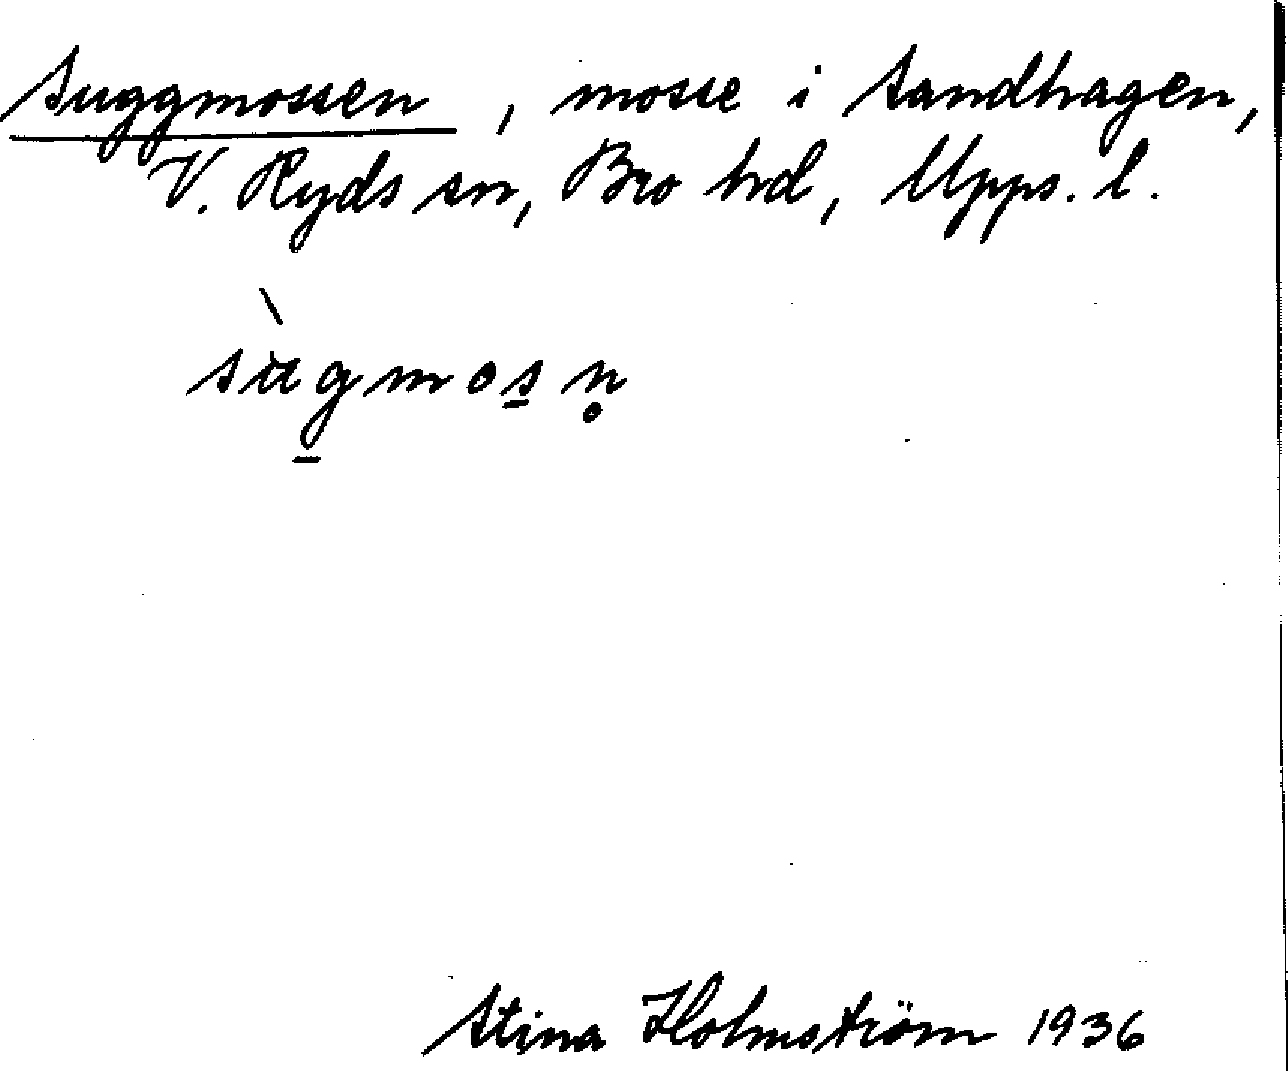 Suggmossen, mosse i Sandhagen,
V. Ryds sn, Bro hd, Upps. l.
sùg̲mos̲n̥
Stina Holmström 1936